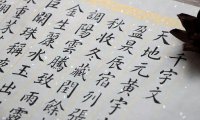 千字文
天地元黃宇
盈昃辰宿列
秋收冬藏閏餘
調陽雲騰致雨
生麗水玉出
闕珠稱
重